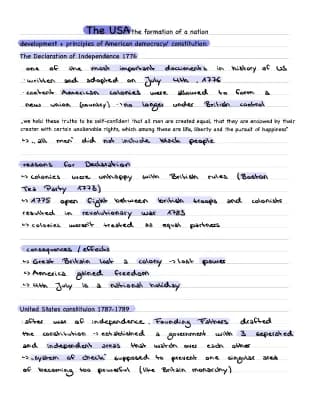 The USA the formation of a nation
development & principles of American democracy/ constitution
The Declaration of Independence 1776
one of the most important documents in history of US
written and adopted on July 4th, 1776
content: American colonies were allowed to form a
new union (country) → no longer under British control
„we hold these truths to be self-confident that all men are created equal, that they are endowed by their
creator with certain unalienable rights, which among these are life, liberty and the pursuit of happiness"
↳ „all men" did not include black people
reasons for Declaration
↳ colonies were unhappy with British rules (Boston
Tea Party 1773)
↳ 1775 open fight between british troops and colonists
resulted in revolutionary war 1783
↳ colonies weren't treated as equal partners
consequences / effects
↳ Great Britain lost a colony → lost power
↳ America gained freedom
↳ 4th July is a national holiday
United States constituion 1787-1789
after war of independence, Founding Fathers drafted
the constitution → established a government with 3 seperated
and independent areas that watch over each other
↳ „system of checks" supposed to prevent one singular area
of becoming too powerful (like Britain monarchy)